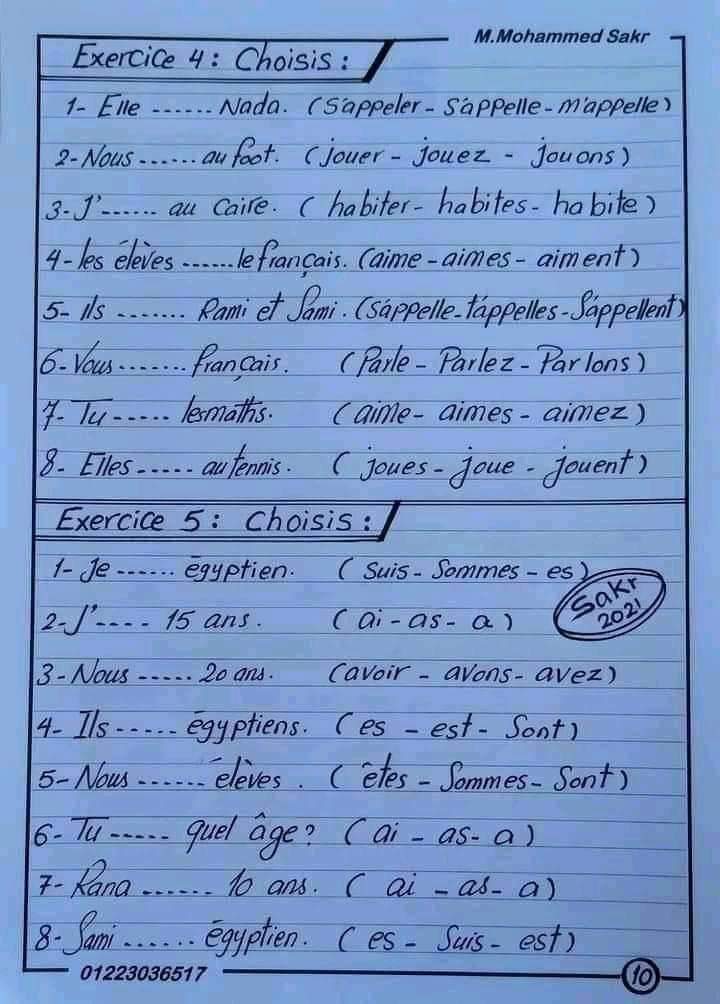 M.Mohammed Sakr
Exercice 4 : Choisis :
1- Elle ...... Nada. (S'appeler - S'appelle - m'appelle)
2- Nous ...... au foot. (jouer - jouez - jouons)
3- J'...... au Caire. (habiter - habites - habite)
4- les élèves ...... le français. (aime - aimes - aiment)
5- Ils ....... Rami et Sami. (S'appelle - t'appelles - S'appellent)
6- Vous ....... français. (Parle - Parlez - Parlons)
7- Tu ------ lesmaths. (aime - aimes - aimez)
8- Elles ----- au tennis. (joues - joue - jouent)
Exercice 5 : Choisis :
1- Je ------ égyptien. (Suis - Sommes - es)
2- J'---- 15 ans. (ai - as - a)
3- Nous ----- 20 ans. (avoir - avons - avez)
4- Ils ----- égyptiens. (es - est - Sont)
5- Nous ...... élèves. (êtes - Sommes - Sont)
6- Tu ----- quel âge? (ai - as - a)
7- Rana ...... 10 ans. (ai - as - a)
8- Sami ...... égyptien. (es - Suis - est)
Sakr
2021
01223036517
10